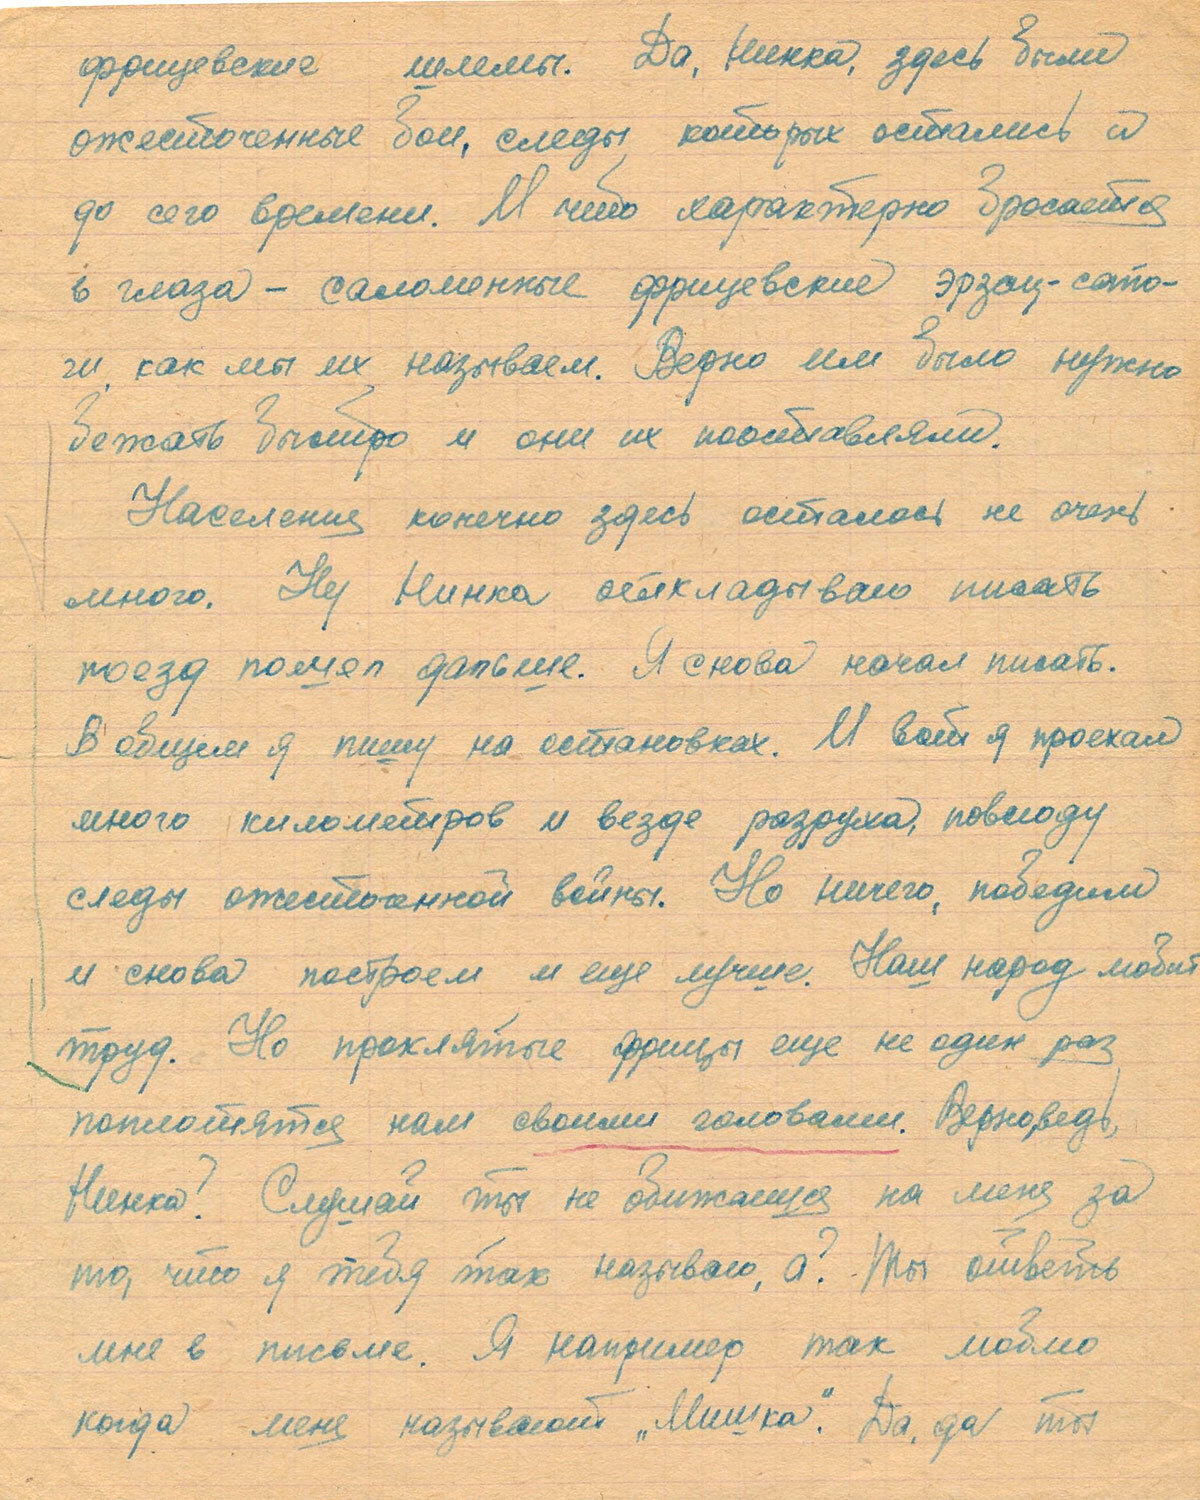 фрицевские шлемы. Да, Нинка, здесь были
ожесточенные бои, следы которых остались и
до сего времени. И что характерно бросается
в глаза – саломенные фрицевские эрзац-сапо-
ги, как мы их называем. Верно им было нужно
бежать быстро и они их пооставляли.
Населения конечно здесь осталось не очень
много. Ну Нинка откладываю писать
поезд пошел дальше. Я снова начал писать.
В общем я пишу на остановках. И вот я проехал
много километров и везде разруха, повсюду
следы ожесточенной войны. Но ничего, победим
и снова построем и еще лучше. Наш народ любит
труд. Но проклятые фрицы еще не один раз
поплотятся нам своими головами. Верно ведь,
Нинка? Слушай ты не обижаишся на меня за
то, что я тебя так называю, а? Ты ответь
мне в письме. Я например так люблю
когда меня называют „Мишка“. Да, да ты